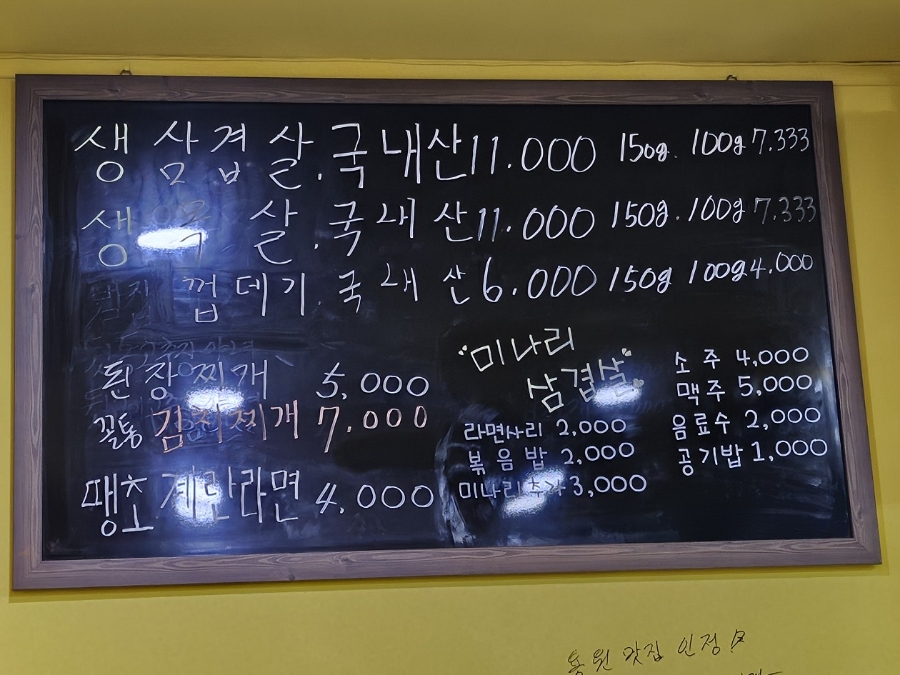 생 삼겹살.국내산 11.000 150g. 100g 7.333
생 목살.국내산 11.000 150g. 100g 7.333
껍데기 국내산 6.000 150g 100g 4.000
된장찌개 5,000
꼴통 김치찌개 7.000
땡초 계란라면 4.000
"미나리
삼겹살"
라면사리 2,000
볶음밥 2,000
미나리추가 3,000
소주 4,000
맥주 5,000
음료수 2,000
공기밥 1,000
용원 맛집 인정